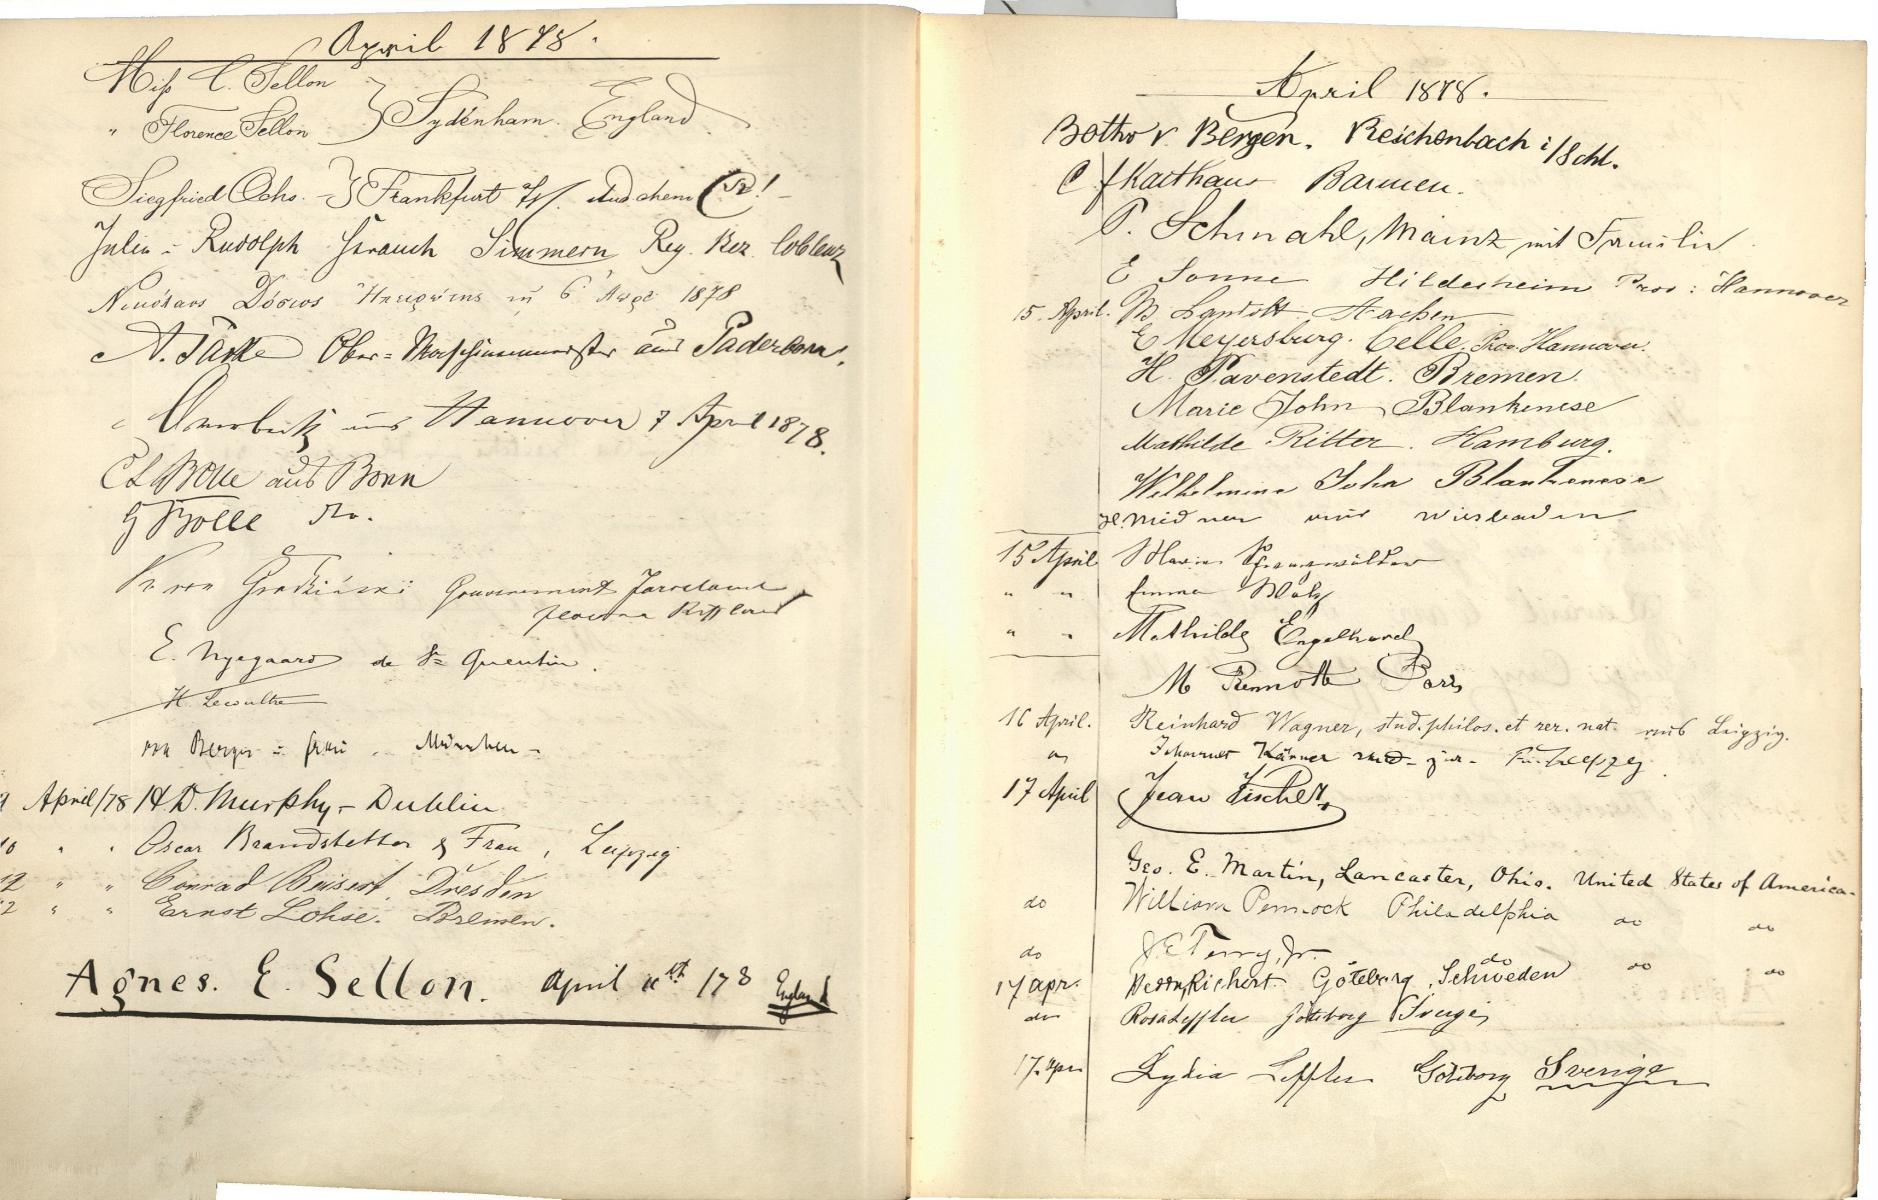 April 1878.
Miss C. Sellon
" Florence Sellon } Sydenham. England
Siegfried Ochs. } Frankfurt a/M. stud chem
Rudolph Simmern Reg. Bez. Coblenz
Νικόλαος Δόσιος Ἠπειρώτης τῇ 6 Απρ 1878
A. Ober-Maschinenmeister aus Paderborn.
aus Hannover 7 April 1878.
C L Bolle aus Bonn
G Bolle do.
von Gouvernement
E. Nyegaard de St Quentin.
H. Lecoultre
von Berger u. Frau. München
9 April/78 H.D. Murphy – Dublin
10 " " Oscar Brandstetter & Frau, Leipzig
12 " " Conrad Dresden
12 " " Ernst Lohse. Bremen.
Agnes. E. Sellon. April /78 England
April 1878.
Botho v. Bergen. Reichenbach i/Schl.
Karthaus Barmen.
P. Schmahl, Mainz mit Familie
E Sonne Hildesheim Prov: Hannover
15. April. Aachen
E Meyersburg. Celle. Prov. Hannover.
H. Pavenstedt. Bremen.
Marie John Blankenese
Mathilde Ritter. Hamburg.
Wilhelmine John Blankenese
aus Wiesbaden
15 April
" " Emma
" " Mathilde Engelhard
M Paris
16 April. Reinhard Wagner, stud. philos. et rer. nat. aus Leipzig.
Johannes Körner stud. jur.
17 April Jean Fischer
Geo. E. Martin, Lancaster, Ohio. United States of America.
do William Pennock Philadelphia do do
do J.E Terry, Jr. do do do
17 apr. Richert Göteborg, Schweden
do Rosa Leffler Göteborg Sverige
17. apr. Lydia Leffler Göteborg Sverige